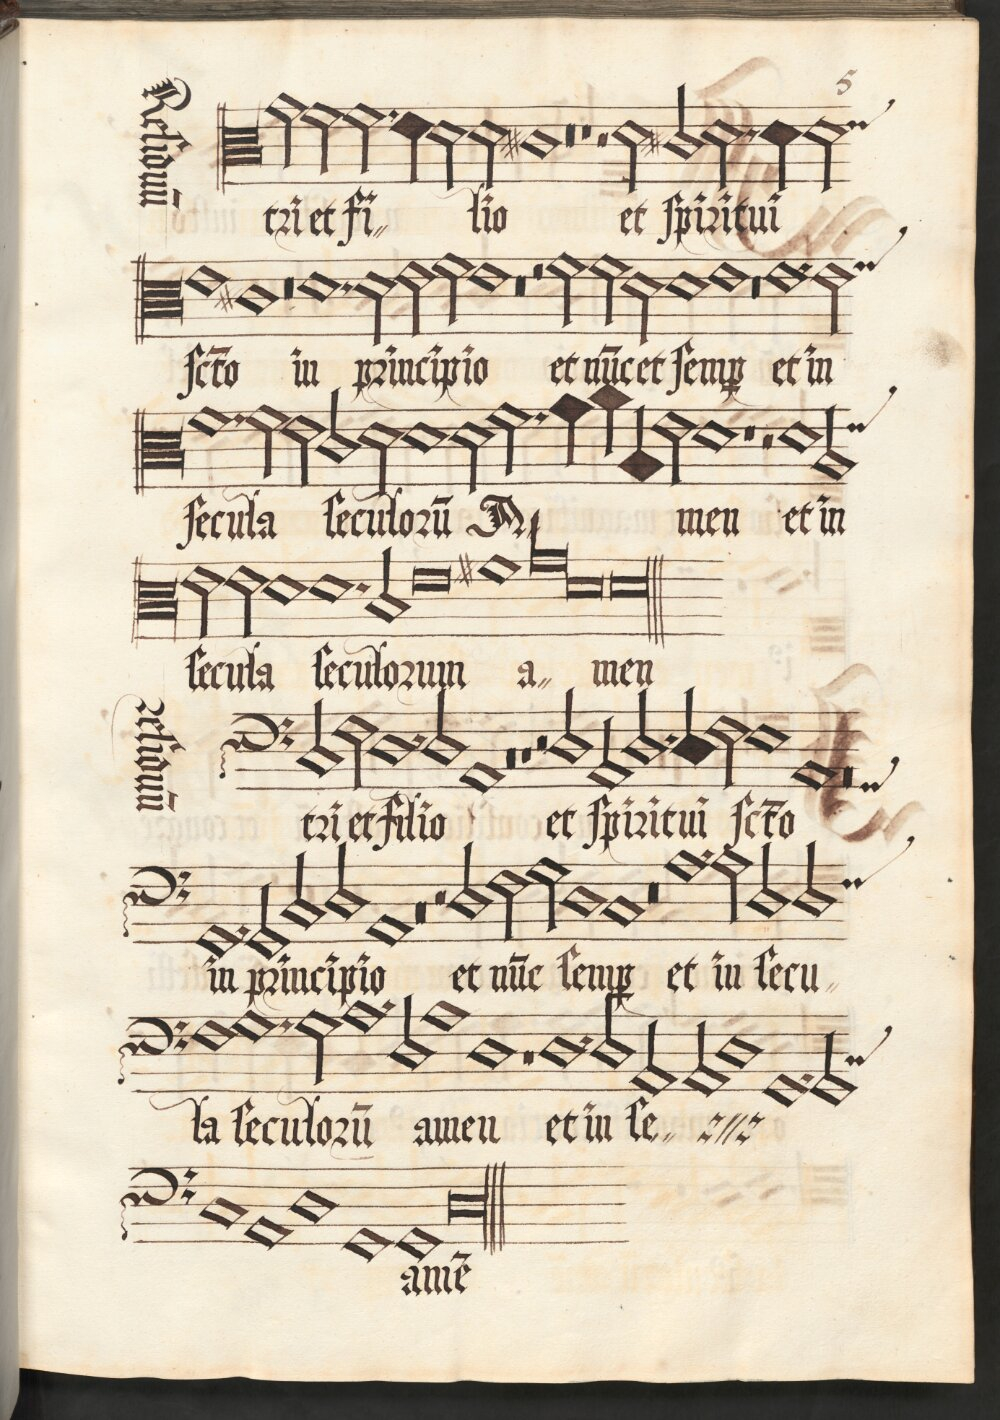 5
Residuū
tri et fi„ lio et spiritui
scto in principio et nūc et semp et in
secula seculorū A„ men et in
secula seculorum a„ men
residuū
tri et filio et spiritui scto
in principio et nūc semp et in secu„
la seculorū amen et in se„
amē